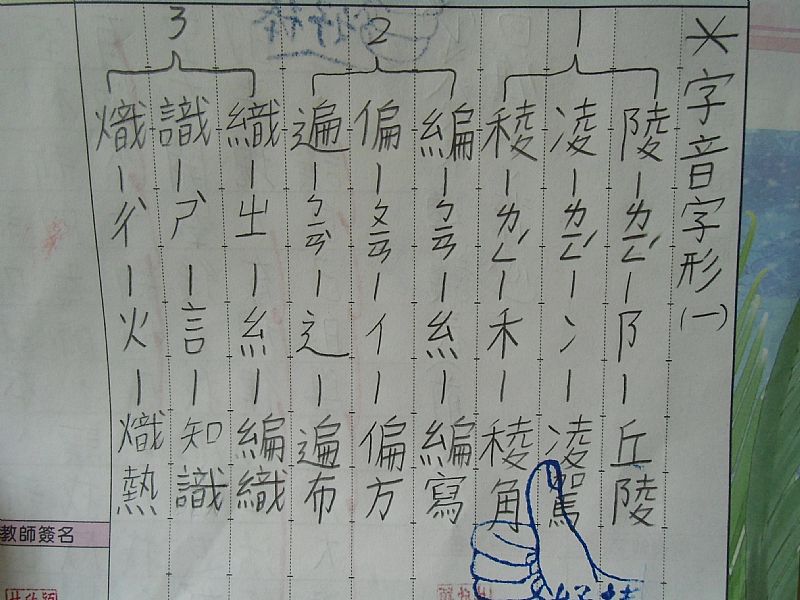 *字音字形(一)
1
陵-ㄌㄧㄥˊ-阝-丘陵
凌-ㄌㄧㄥˊ-冫-凌駕
稜-ㄌㄥˊ-禾-稜角
2
編-ㄅㄧㄢ-糹-編寫
偏-ㄆㄧㄢ-亻-偏方
遍-ㄅㄧㄢˋ-辶-遍布
3
織-ㄓ-糹-編織
識-ㄕˋ-言-知識
熾-ㄔˋ-火-熾熱
教師簽名